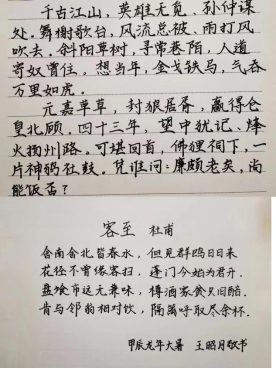 千古江山，英雄无觅、孙仲谋
处。舞榭歌台，风流总被、雨打风
吹去。斜阳草树，寻常巷陌，人道
寄奴曾住。想当年，金戈铁马，气吞
万里如虎。
元嘉草草，封狼居胥，赢得仓
皇北顾，四十三年，望中犹记、烽
火扬州路。可堪回首，佛狸祠下，一
片神鸦社鼓。凭谁问：廉颇老矣，尚
能饭否？
客至 杜甫
舍南舍北皆春水，但见群鸥日日来
花径不曾缘客扫，蓬门今始为君开。
盘飧市远无兼味，樽酒家贫只旧醅。
肯与邻翁相对饮，隔篱呼取尽余杯。
甲辰龙年大暑 王昭月敬书